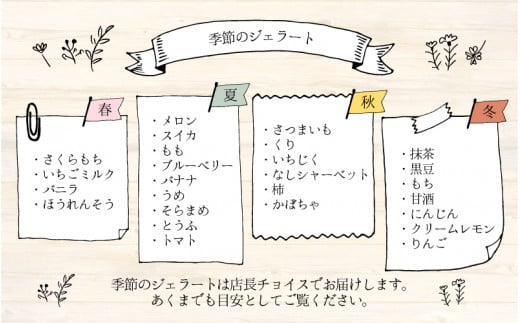 季節のジェラート
春
・さくらもち
・いちごミルク
・バニラ
・ほうれんそう
夏
・メロン
・スイカ
・もも
・ブルーベリー
・バナナ
・うめ
・そらまめ
・とうふ
・トマト
秋
・さつまいも
・くり
・いちじく
・なしシャーベット
・柿
・かぼちゃ
冬
・抹茶
・黒豆
・もち
・甘酒
・にんじん
・クリームレモン
・りんご
季節のジェラートは店長チョイスでお届けします。
あくまでも目安としてご覧ください。